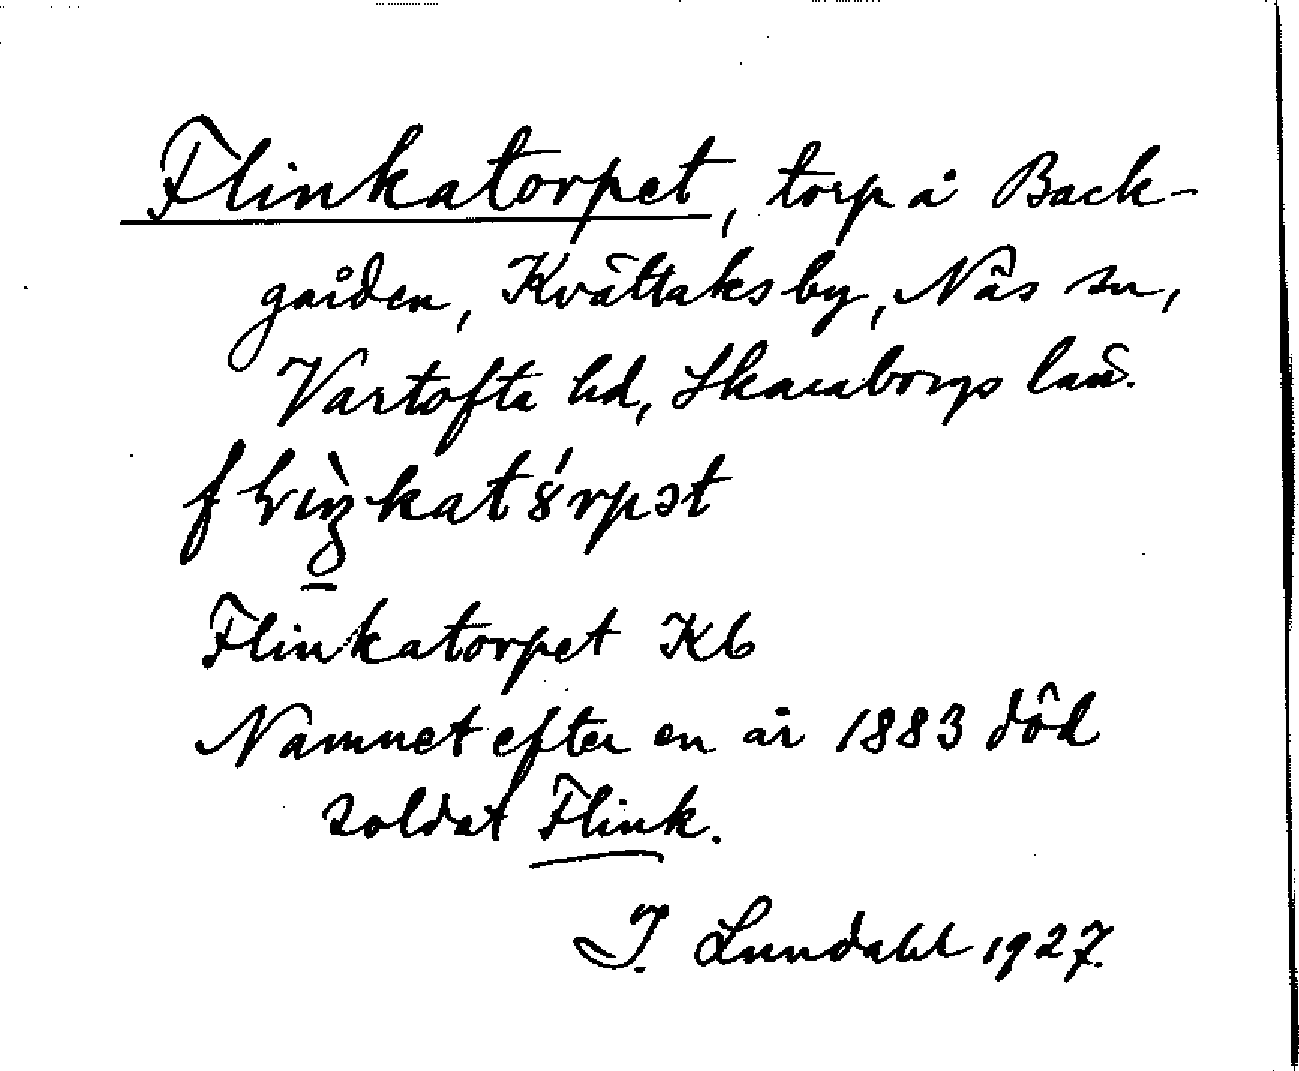 Flinkatorpet, torp å Back-
gården, Kvättaksby, Näs sn,
Vartofta hd, Skaraborgs län.
Flinkatorpet Kb
Namnet efter en år 1883 död
soldat Flink.
I. Lundahl 1927.